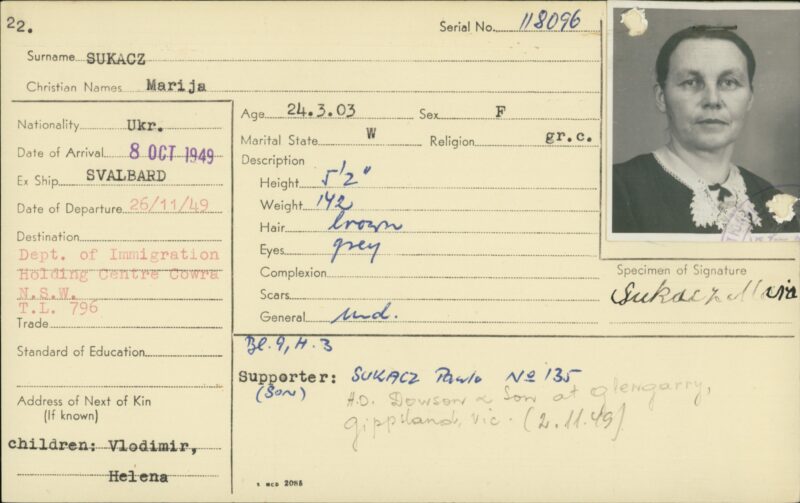 22.
Serial No. 118096
Surname SUKACZ
Christian Names Marija
Nationality Ukr.
Date of Arrival 8 OCT 1949
Ex Ship SVALBARD
Date of Departure 26/11/49
Destination
Dept. of Immigration
Holding Centre Cowra
N.S.W.
T.L. 796
Trade
Standard of Education
Address of Next of Kin
(If known)
children: Vlodimir,
Helena
Age 24.3.03 Sex F
Marital State W Religion gr.c.
Description
Height 5'2"
Weight 142
Hair brown
Eyes grey
Complexion
Scars
General med.
Specimen of Signature
Sukacz Maria
Bl. 9, H. 3
Supporter: SUKACZ Pawlo No 135
(Son) H.D. Dowson & Son at Glengarry,
Gippsland, Vic. (2.11.49)
2085